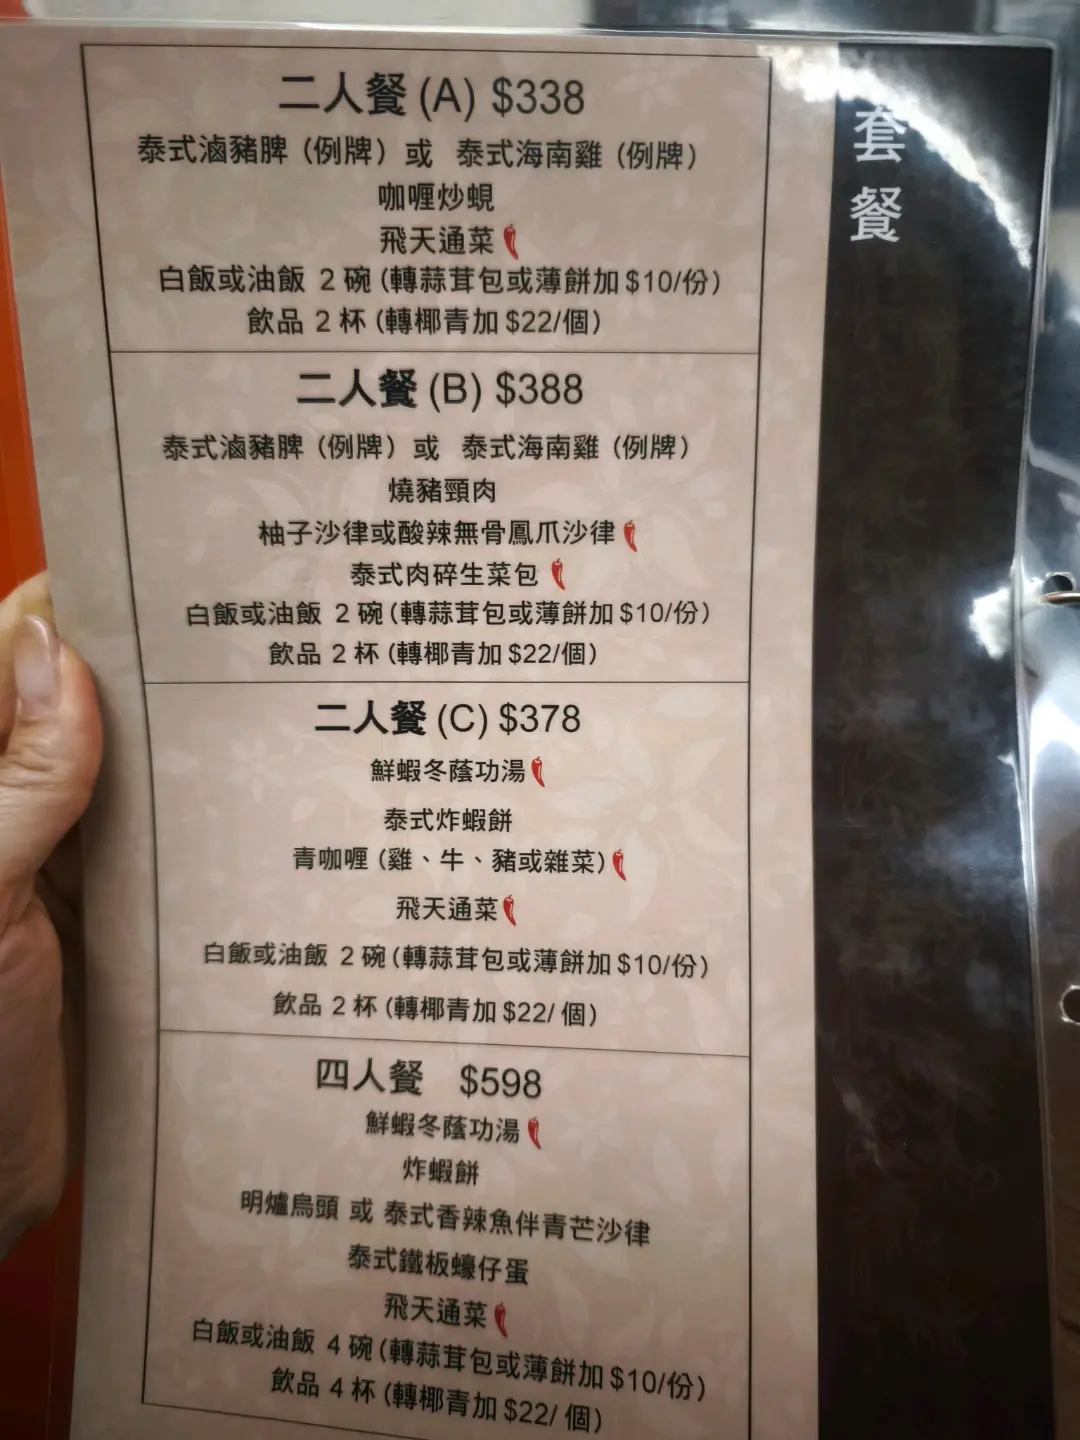 套餐
二人餐 (A) $338
泰式滷豬脾（例牌）或 泰式海南雞（例牌）
咖喱炒蜆
飛天通菜
白飯或油飯 2 碗 (轉蒜茸包或薄餅加 $10/份)
飲品 2 杯 (轉椰青加 $22/個)
二人餐 (B) $388
泰式滷豬脾（例牌）或 泰式海南雞（例牌）
燒豬頸肉
柚子沙律或酸辣無骨鳳爪沙律
泰式肉碎生菜包
白飯或油飯 2 碗 (轉蒜茸包或薄餅加 $10/份)
飲品 2 杯 (轉椰青加 $22/個)
二人餐 (C) $378
鮮蝦冬蔭功湯
泰式炸蝦餅
青咖喱 (雞、牛、豬或雜菜)
飛天通菜
白飯或油飯 2 碗 (轉蒜茸包或薄餅加 $10/份)
飲品 2 杯 (轉椰青加 $22/ 個)
四人餐 $598
鮮蝦冬蔭功湯
炸蝦餅
明爐烏頭 或 泰式香辣魚伴青芒沙律
泰式鐵板蠔仔蛋
飛天通菜
白飯或油飯 4 碗 (轉蒜茸包或薄餅加 $10/份)
飲品 4 杯 (轉椰青加 $22/ 個)